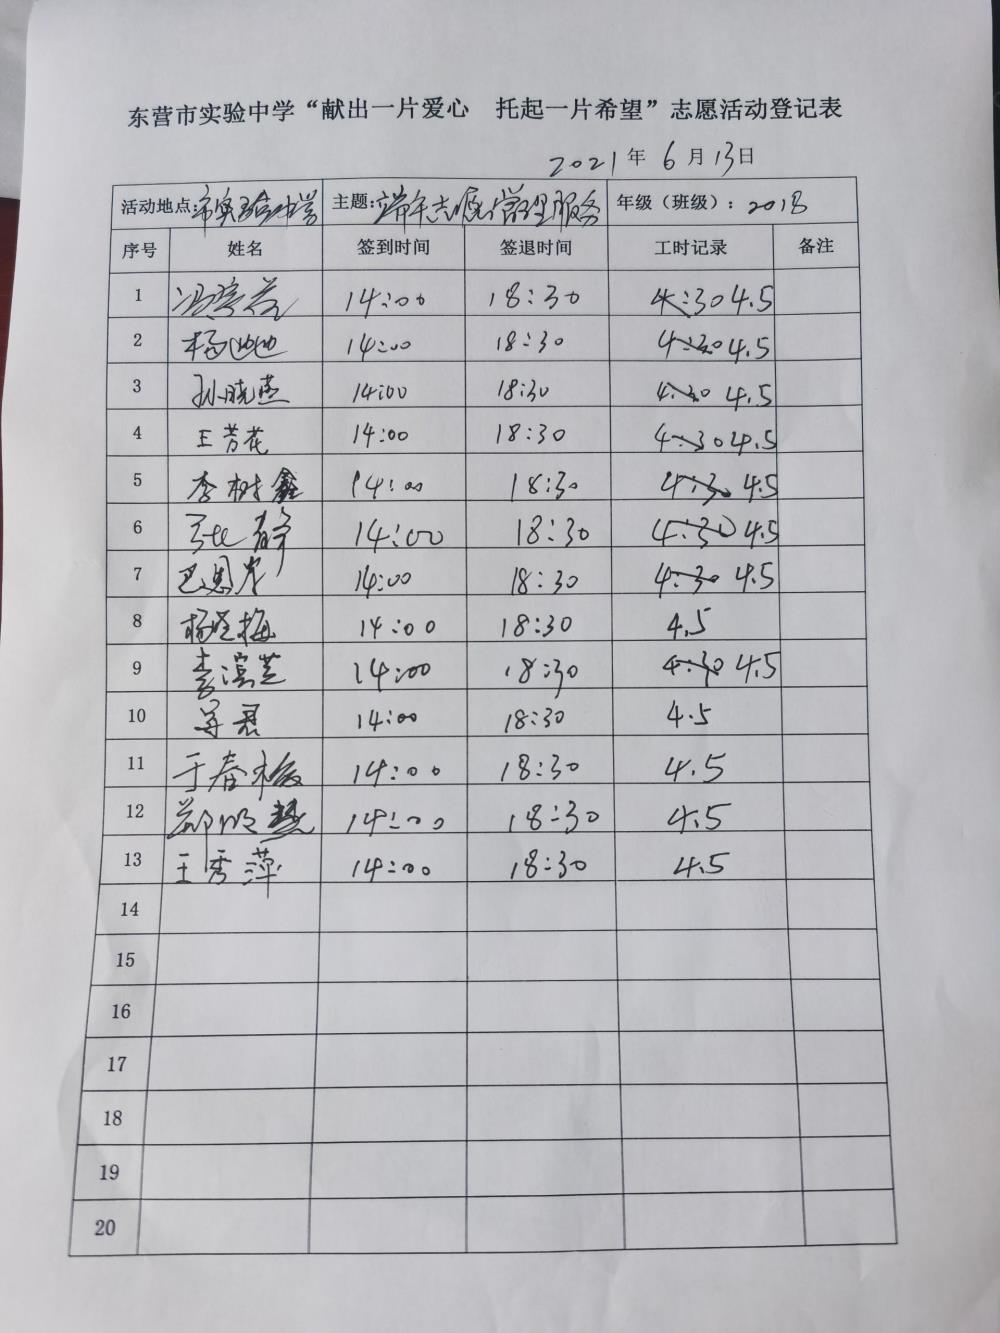 东营市实验中学“献出一片爱心 托起一片希望”志愿活动登记表
2021年6月13日
活动地点:市实验中学 主题:端午志愿管理服务 年级（班级）:2018
序号 姓名 签到时间 签退时间 工时记录 备注
1 冯 14:00 18:30 4:30 4.5
2 杨 14:00 18:30 4:30 4.5
3 孙晓燕 14:00 18:30 4:30 4.5
4 王芳花 14:00 18:30 4:30 4.5
5 李树鑫 14:00 18:30 4:30 4.5
6 张静 14:00 18:30 4:30 4.5
7 巴恩 14:00 18:30 4:30 4.5
8 杨 梅 14:00 18:30 4.5
9 李滨芝 14:00 18:30 4:30 4.5
10 14:00 18:30 4.5
11 于春 14:00 18:30 4.5
12 郑明慧 14:00 18:30 4.5
13 王秀萍 14:00 18:30 4.5
14
15
16
17
18
19
20